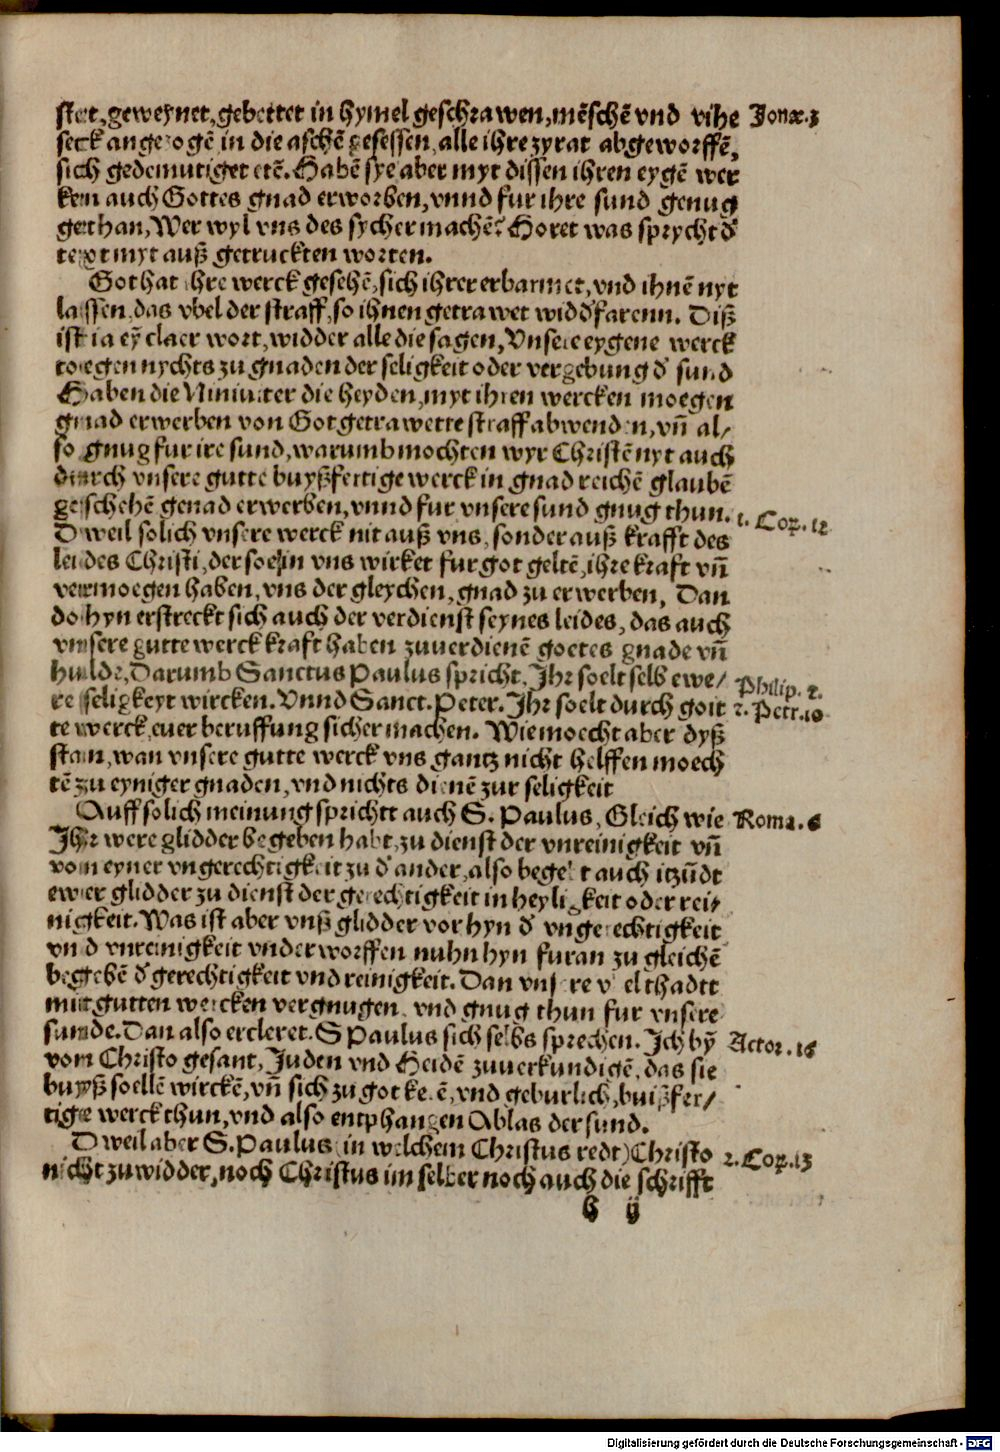 stet, geweynet, gebettet in hymel geschrawen, mēschē vnd vihe Jonæ.3
seck angezogē in die aschē gesessen, alle ihre zyrat abgeworffē,
sich gedemutiget etē. Habē sye aber myt dissen ihren eygē wer
ken auch Gottes gnad erworben, vnnd fur ihre sund genug
gethan, Wer wyl vns des sycher machē? Horet was sprycht d'
text myt auß getruckten worten.
Got hat ihre werck gesehē, sich ihrer erbarmet, vnd ihnē nyt
lassen, das vbel der straff, so ihnen getrawet widd'farenn. Diß
ist ia eȳ claer wort, widder alle die sagen, Vnsere eygene werck
toegen nychts zu gnaden der seligkeit oder vergebung d' sund
Haben die Niniuiter die heyden, myt ihren wercken moegen
gnad erwerben von Got getrawette straff abwenden, vn̄ al/
so gnug fur ire sund, warumb mochten wyr Christē nyt auch
durch vnsere gutte buyßfertige werck in gnad reichē glaubē
geschehē genad erwerben, vnnd fur vnsere sund gnug thun. 1. Cor. 12
Dweil solich vnsere werck nit auß vns, sonder auß krafft des
leides Christi, der soelin vns wirket fur got geltē, ihre kraft vn̄
vermoegen haben, vns der gleychen, gnad zu erwerben, Dan
do hyn erstreckt sich auch der verdienst seynes leides, das auch
vnsere gutte werck kraft haben zuuerdienē goetes gnade vn̄
hulde, Darumb Sanctus Paulus spricht, Ihr soelt selb ewe/ Philip. 2.
re seligkeyt wircken. Vnnd Sanct. Peter. Ihr soelt durch goit 2. Petr.10
te werck, euer beruffung sicher machen. Wie moecht aber dyß
stan, wan vnsere gutte werck vns gantz nicht helffen moech
tē zu eyniger gnaden, vnd nichts dienē zur seligkeit
Auff solich meinung sprichtt auch S. Paulus, Gleich wie Roma. 6
Ihr were glidder begeben habt, zu dienst der vnreinigkeit vn̄
von eyner vngerechtigkeit zu d' ander, also begebt auch itzūdt
ewer glidder zu dienst der gerechtigkeit in heyligkeit oder rei/
nigkeit. Was ist aber vnß glidder vor hyn d' vngerechtigkeit
vnd vnreinigkeit vnderworffen nuhn hyn furan zu gleichē
begebē d' gerechtigkeit vnd reinigkeit. Dan vnsere vbelthadtt
mit gutten wercken vergnugen, vnd gnug thun fur vnsere
sunde. Dan also ercleret. S Paulus sich selbs sprechen. Ich bȳ Actor. 16
vom Christo gesant, Juden vnd Heidē zuuerkundigē, das sie
buyß soellē wirckē, vn̄ sich zu got kerē, vnd geburlich, buißfer/
tige werck thun, vnd also entphangen Ablas der sund.
Dweil aber S. Paulus (in welchem Christus redt) Christo 2. Cor.13
nicht zu widder, noch Christus im selber noch auch die schrifft
h ij
Digitalisierung gefördert durch die Deutsche Forschungsgemeinschaft - DFG